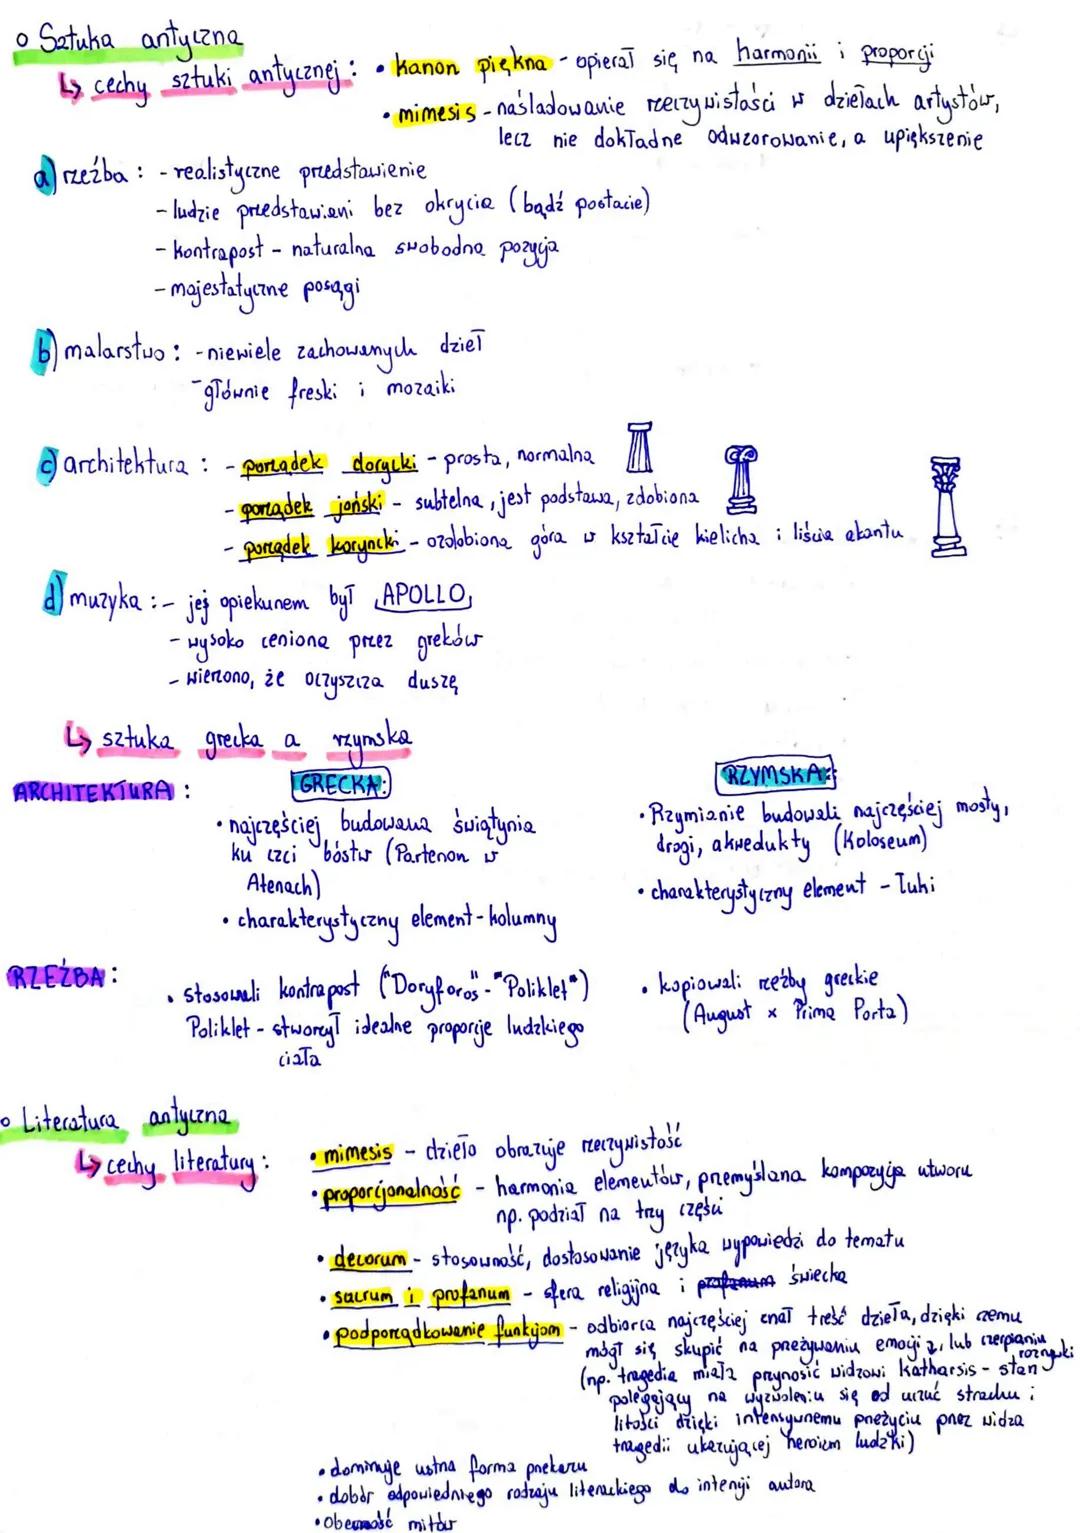 o Sztuka antyczna
↳ cechy sztuki antycznej: • kanon piękna - opierał się na harmonii i proporcji
• mimesis - naśladowanie rzeczywistości w dziełach artystów,
lecz nie dokładne odwzorowanie, a upiększenie
a) rzeźba: - realistyczne przedstawienie
- ludzie przedstawieni bez okrycia (bądź postacie)
- kontrapost - naturalna swobodna pozycja
- majestatyczne posągi
b) malarstwo: - niewiele zachowanych dzieł
- głównie freski i mozaiki
c) architektura: - porządek dorycki - prosta, normalna
- porządek joński - subtelna, jest podstawa, zdobiona
- porządek koryncki - ozdobiona góra w kształcie kielicha i liścia akantu
d) muzyka: - jej opiekunem był APOLLO,
- wysoko ceniona przez greków
- wierzono, że oczyszcza duszę
↳ sztuka grecka a rzymska
ARCHITEKTURA: GRECKA: RZYMSKA:
• najczęściej budowana świątynia
ku czci bóstw (Partenon w
Atenach)
• charakterystyczny element - kolumny
• Rzymianie budowali najczęściej mosty,
drogi, akwedukty (Koloseum)
• charakterystyczny element - Łuki
RZEŹBA:
• stosowali kontrapost ("Doryforos" - "Poliklet")
Poliklet - stworzył idealne proporcje ludzkiego
ciała
• kopiowali rzeźby greckie
(August x Prima Porta)
o Literatura antyczna
↳ cechy literatury: • mimesis - dzieło obrazuje rzeczywistość
• proporcjonalność - harmonia elementów, przemyślana kompozycja utworu
np. podział na trzy części
• decorum - stosowność, dostosowanie języka wypowiedzi do tematu
• sacrum i profanum - sfera religijna i profanum świecka
• podporządkowanie funkcjom - odbiorca najczęściej znał treść dzieła, dzięki czemu
mógł się skupić na przeżywaniu emocji z, lub czerpaniu
rozrywki
(np. tragedia miała przynosić widzowi katharsis - stan
polegający na wyzwoleniu się od uczuć strachu i
litości dzięki intensywnemu przeżyciu przez widza
tragedii ukazującej heroizm ludzki)
• dominuje ustna forma przekazu
• dobór odpowiedniego rodzaju literackiego do intencji autora
• obecność mitów